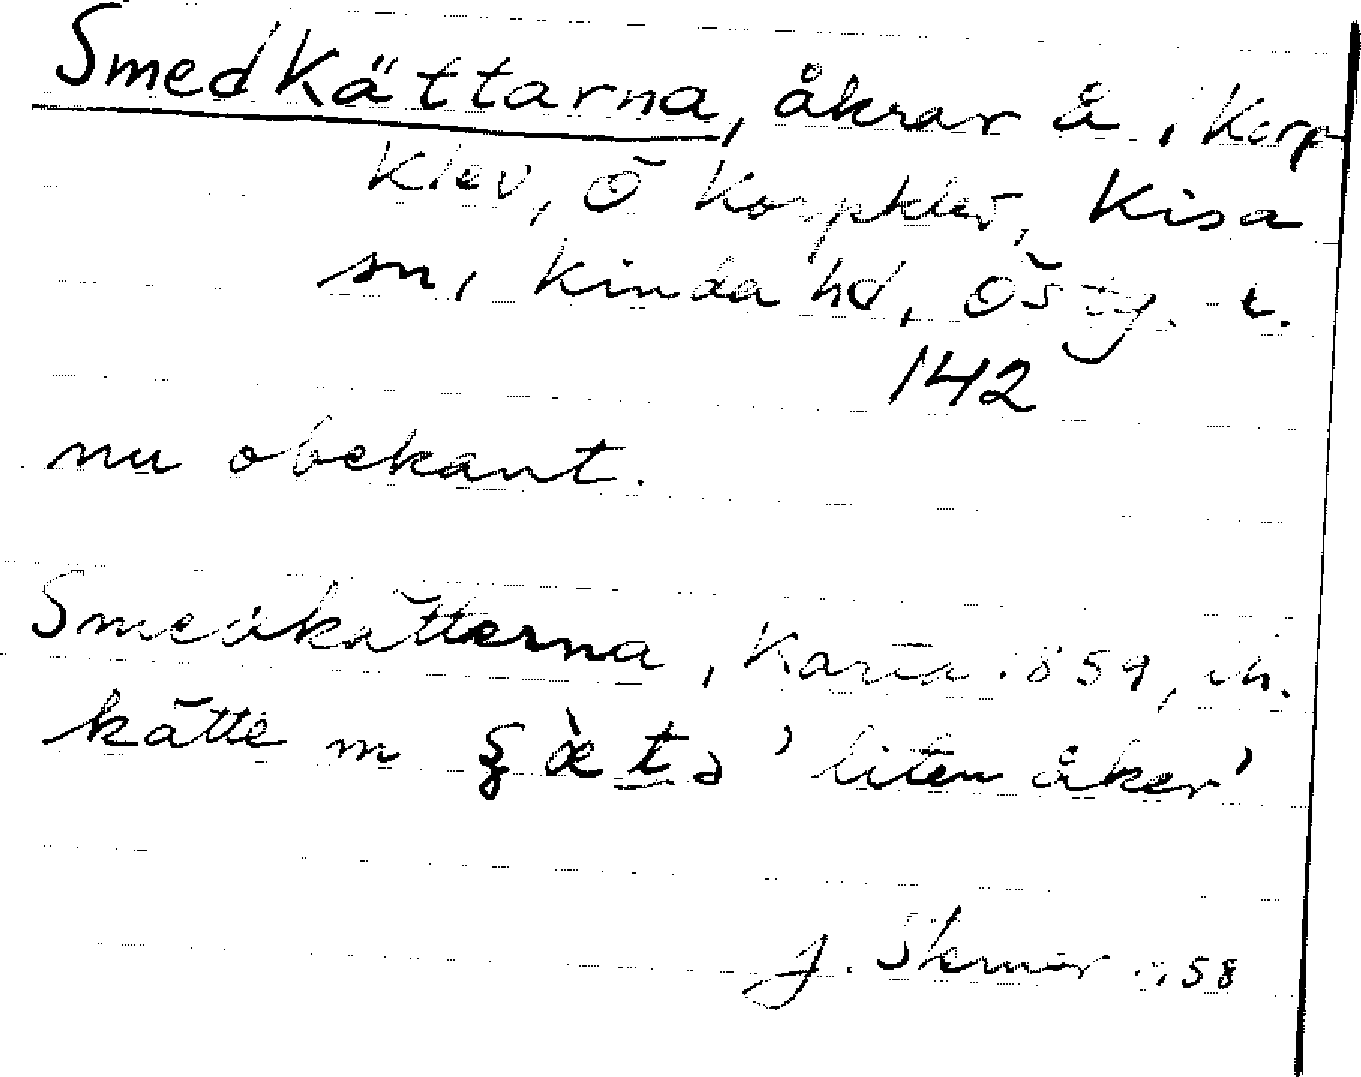 Smedkättarna, åkrar å, Korp
klev, Ö Korpklev, Kisa
sn, Kinda hd, Östg. l.
142
nu obekant.
Smedkätterna, Karta 1859, ih.
kätte m ʂæ̀tə 'liten åker'
J. Sterner 1958